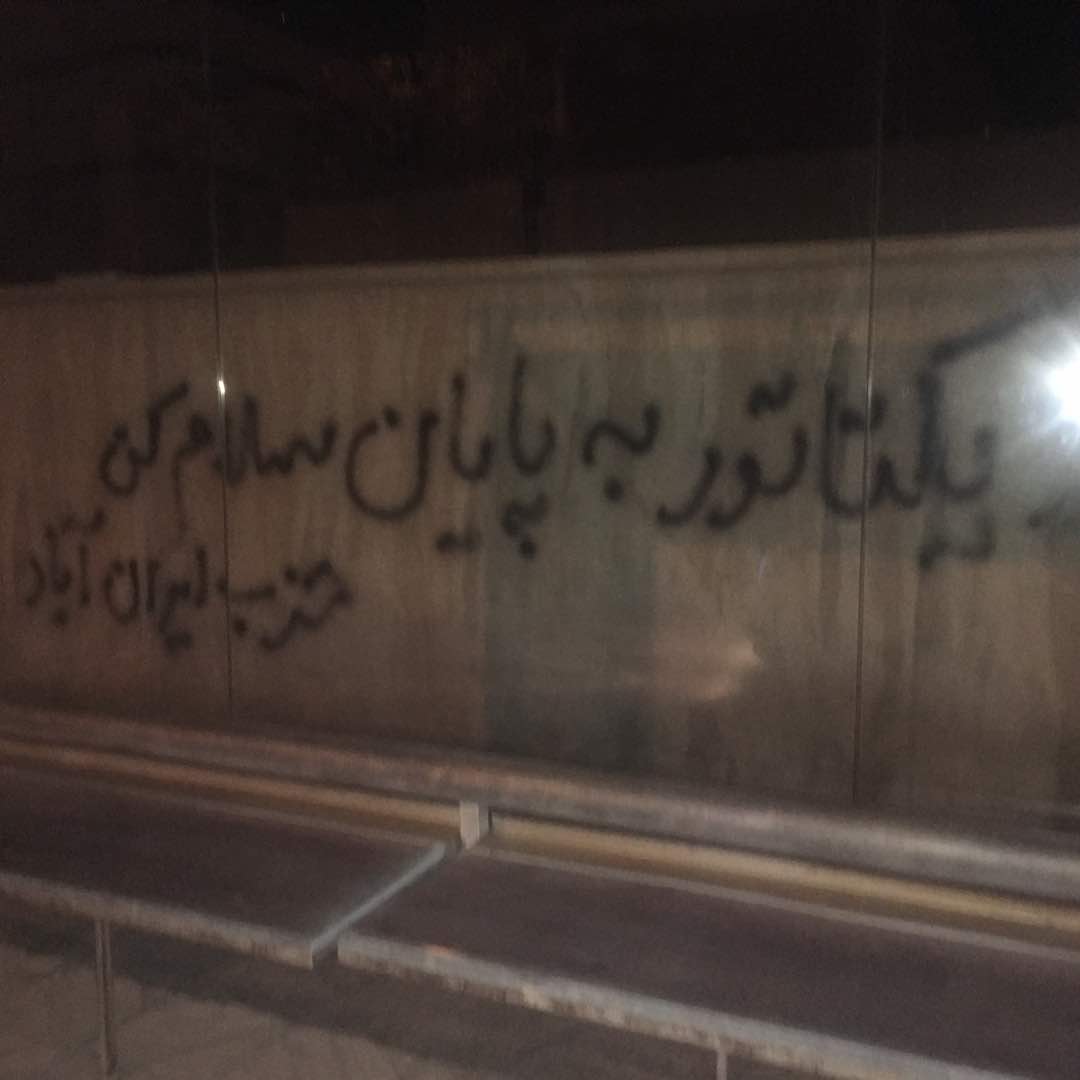 دیکتاتور به پایان سلام کن
حزب ایران آباد